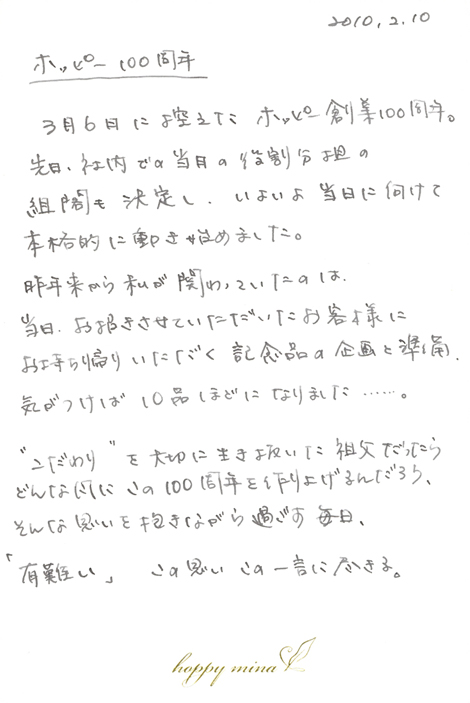 2010, 2, 10
ホッピー 100周年
3月6日に控えた ホッピー創業100周年。
先日、社内での当日の役割分担の
組閣も決定し、いよいよ当日に向けて
本格的に動き始めました。
昨年来から私が関わっていたのは、
当日、お招きさせていただいたお客様に
お持ち帰りいただく記念品の企画と準備、
気がつけば10品ほどになりました……。
"こだわり"を大切に生き抜いた祖父だったら
どんな風にこの100周年を作り上げるんだろう、
そんな思いを抱きながら過ごす毎日、
「有難い」 この思いこの一言に尽きる。
hoppy mina